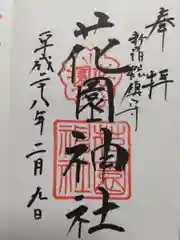 奉拝
新宿総鎮守
花園神社
平成二十八年二月九日